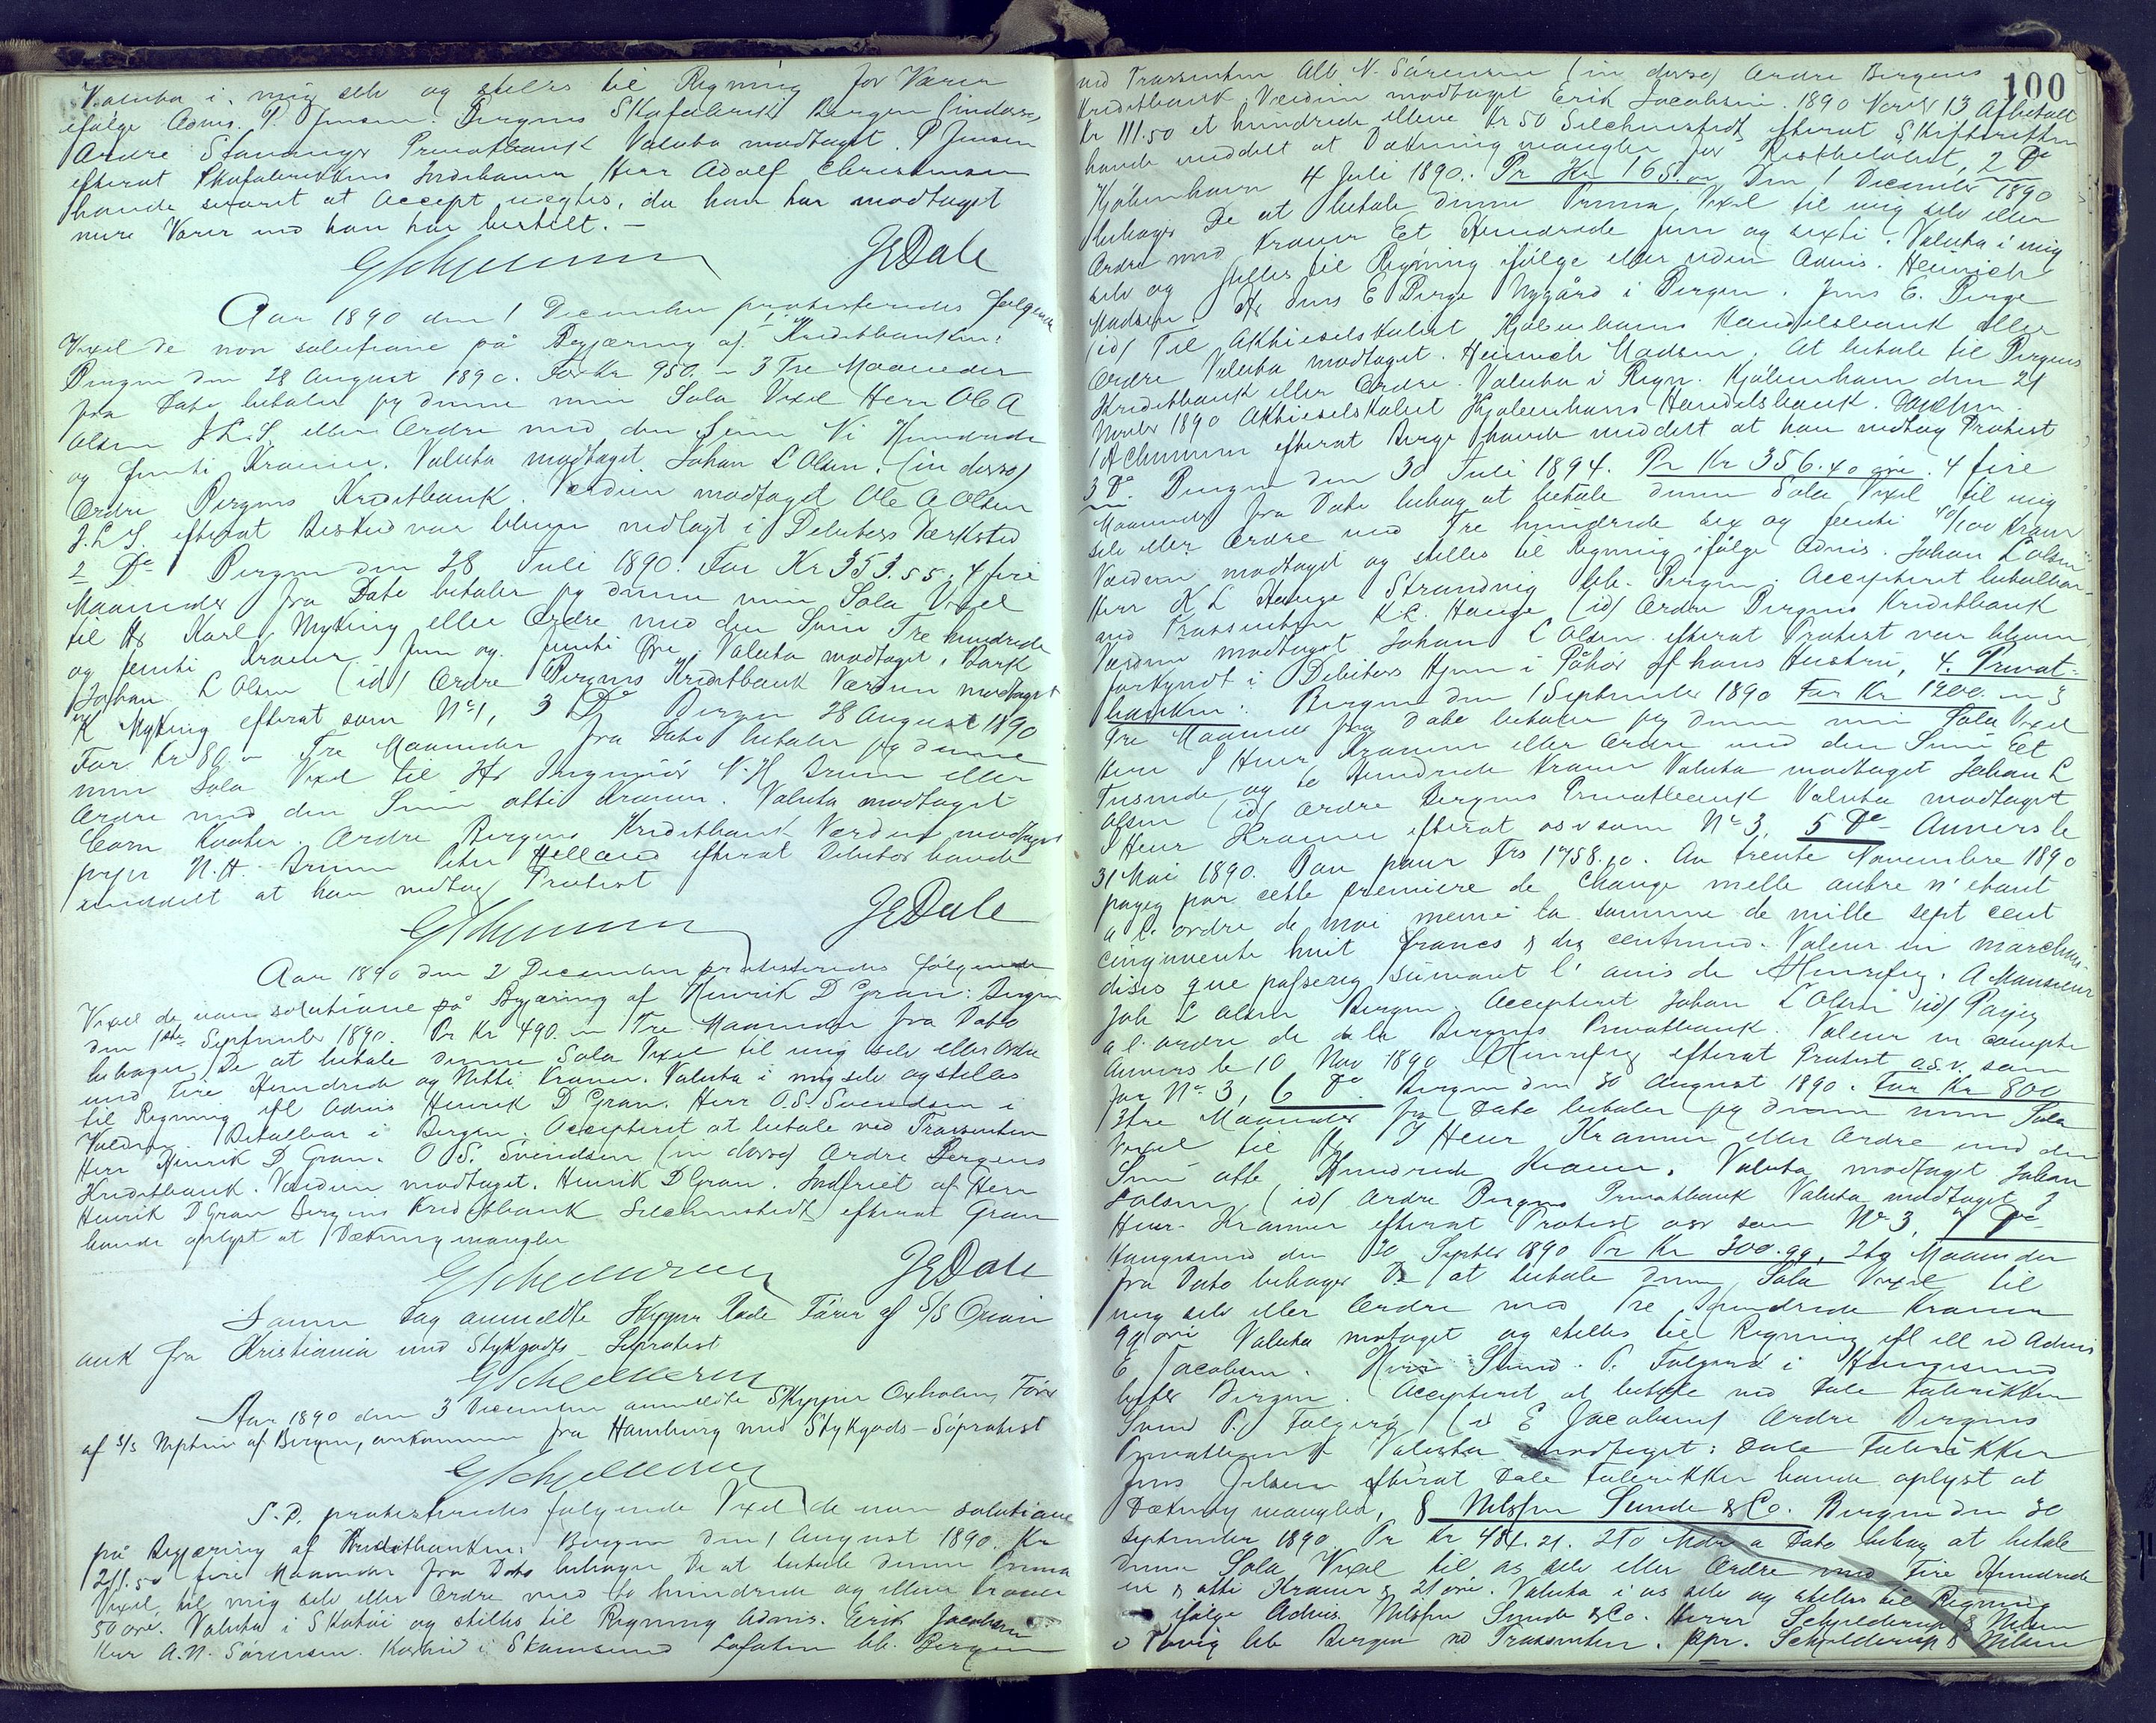 Valuta i mig selv og stilles til Regning for Varer
ifølge Advis. P. Jensen. Bergens Skofabrik Bergen (indorso)
Ordre Stavanger Privatbank Valuta modtaget. P Jensen
efterat Skofabrikkens Indehaver Herr Adolf Christensen
havde svaret at Accept negtes, da han har modtaget
mere Varer end han har bestilt. —
JEDale
Aar 1890 den 1 December protesteredes følgende
Vexel de non solutione på Begjæring af Kreditbanken:
Bergen den 28 August 1890. For Kr 950 – 3 Tre Maaneder
fra Dato betaler jeg denne min Sola Vexel Herr Ole A
Olsen J.L.S. eller Ordre med den Sum Ni Hundrede
og femti Kroner. Valuta modtaget. Johan L Olsen. (in dorso)
Ordre Bergens Kreditbank. Værdien modtaget Ole A Olsen
J.L.S. efterat Besked var bleven nedlagt i Debitors Værksted
2 Do Bergen den 28 Juli 1890. For Kr 353.55. 4 fire
Maaneder fra Dato betaler jeg denne min Sola Vexel
til Hr Karl Myking eller Ordre med den Sum Tre hundrede
og femti Kroner fem og femti Øre. Valuta modtaget,
Johan L Olsen (id) Ordre Bergens Kreditbank Værdien modtaget
K Myking efterat som No 1, 3 Do Bergen 28 August 1890
For Kr 80 – Tre Maaneder fra Dato betaler jeg denne
min Sola Vexel til Hr Ingeniör N. H. Bruun eller
Ordre med den Sum otti Kroner. Valuta modtaget
Ordre Bergens Kreditbank Værdien modtaget
N.H. Bruun Peter Helland efterat Debitor havde
meddelt at han vedtog Protest
JEDale
Aar 1890 den 2 December protesteredes følgende
Vexel de non solutione på Begjæring af Henrik D Gran: Bergen
den 1ste September 1890. Pr Kr 490. – Tre Maaneder fra Dato
behager De at betale denne Sola Vexel til mig selv eller Ordre
med Fire Hundrede og Nitti Kroner. Valuta i mig selv og stilles
til Regning ifl Advis Henrik D Gran. Herr O.S. Svendsen i
Betalbar i Bergen. Accepteret at betale ved Trassenten
Herr Henrik D Gran. O S. Svendsen (in dorso) Ordre Bergens
Kreditbank. Værdien modtaget. Henrik D Gran. Indfriet af Herr
Henrik D Gran Bergens Kreditbank efterat Gran
havde oplyst at Dækning mangler
JEDale
Samme Dag anmeldte Skipper Rode Fører af S/S
ank fra Kristiania med Stykgods – Söprotest
Aar 1890 den 3 December anmeldte Skipper Oxholm, Fører
af S/S Neptun af Bergen, ankommen fra Hamburg med Stykgods – Söprotest
S.D. protesteredes følgende Vexel de non solutione
på Begjæring af Kreditbanken: Bergen den 1 August 1890. Kr
211.50 fire Maaneder fra Dato behager De at betale denne Prima
Vexel til mig selv eller Ordre med to hundrede og elleve Kroner
50 øre. Valuta i Skotöi og stilles til Regning Advis. Erik Jacobsen
Herr A.N. Sørensen. i Lofoten bb. Bergen
100
ved Trassenten Alb N. Sørensen (in dorso) Ordre Bergens
Kreditbank Værdien modtaget Erik Jacobsen. 1890 Novbr 13 Afbetalt
Kr 111.50 et hundrede elleve Kr 50 efterat Skifteretten
havde meddelt at Dækning mangler for Restbeløbet, 2 Do
Kjøbenhavn 4 Juli 1890. Pr Kr 165. – Den 1 December 1890
behager De at betale denne Prima Vexel til mig selv eller
Ordre med Kroner Et Hundrede fem og sexti. Valuta i mig
selv og stilles til Regning ifølge eller uden Advis. Heinrich
Madsen. Hr Jens E Birge Nygård i Bergen. Jens E. Birge
(id) Til Aktieselskabet Kjøbenhavns Handelsbank eller
Ordre Valuta modtaget. Heinrich Madsen. At betale til Bergens
Kreditbank eller Ordre. Valuta i Regn. Kjøbenhavn den 21
Novbr 1890 Aktieselskabet Kjøbenhavns Handelsbank.
efterat Birge havde meddelt at han vedtog Protest
3 Do Bergen den 30 Juli 1894. Pr Kr 356.40 øre. 4 fire
Maaneder fra Dato behag at betale denne Sola Vexel til mig
selv eller Ordre med Tre hundrede sex og femti 40/100 Kroner
Værdien modtaget og stilles til Regning ifølge Advis. Johan L Olsen
Herr K L Hauge Strandvig bb. Bergen. Accepteret betalbar
ved Trassenten K.L. Hauge (id) Ordre Bergens Kreditbank
Værdien modtaget Johan L Olsen efterat Protest var bleven
forkyndt i Debitors Hjem i Påhør af hans Hustru, 4. Privat-
banken: Bergen den 1 September 1890 For Kr 1200. – 3
Tre Maaneder fra Dato betaler jeg denne min Sola Vexel
Herr J Henr Kramer eller Ordre med den Sum Eet
Tusinde og to Hundrede Kroner Valuta modtaget Johan L
Olsen (id) Ordre Bergens Privatbank Valuta modtaget
J Henr Kramer efterat osv som No 3, 5 Do Anvers le
31 Mai 1890. Bon pour Frs 1758.10. Au trente Novembre 1890
payez par cette première de Change melle autre n'étant
a l. ordre de moi meme la somme de mille sept cent
cinquante huit francs & dix centimes. Valeur en marchan-
dises que passerez suivant l' avis de A Monsieur
Joh L Olsen Bergen. Accepteret Johan L Olsen (id) Payez
a l. ordre de la Bergens Privatbank. Valeur en compte
Anvers le 10 Nov 1890 efterat Protest o.s.v. som
for No 3, 6 Do Bergen den 30 August 1890. For Kr 800
3 tre Maaneder fra Dato betaler jeg denne min Sola
Vexel til Hr J Henr Kramer eller Ordre med den
Sum otte Hundrede Kroner. Valuta modtaget Johan
L Olsen (id) Ordre Bergens Privatbank Valuta modtaget J
Henr. Kramer efterat Protest osv som No 3, 7 Do
Haugesund den 30 Septbr 1890 Pr Kr 300.99, 2 to Maaneder
fra Dato behager De at betale denne Sola Vexel til
mig selv eller Ordre med Tre Hundrede Kroner
99 øre Valuta motaget og stilles til Regning ifl ell ud Advis
E Jacobsen. Herr Svend P. i Haugesund
Bergen. Accepteret at betale ved Dale Fabrikker
Svend P. (id E Jacobsen) Ordre Bergens
Privatbank Valuta modtaget: Dale Fabrikker
Jens efterat Dale Fabrikker havde oplyst at
Dækning mangler, 8 Nilssen Sunde & Co. Bergen den 30
September 1890 Pr Kr 481.21. 2 To Mdr a Dato behag at betale
denne Sola Vexel til os selv eller Ordre med Fire Hundrede
en & otti Kroner & 21 øre. Valuta i os selv og stilles til Regning
ifølge Advis Nilssen Sunde & Co. Herrer Schjelderup & Nilsen
bb Bergen Trassenten. ppr. Schjelderup & Nilsen